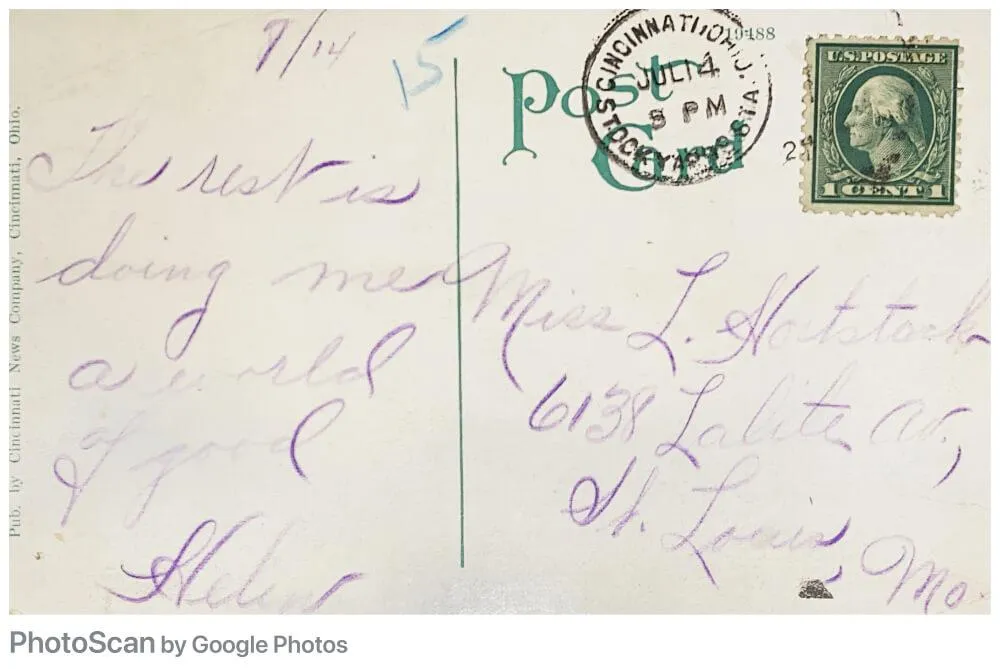 7/14
15
The rest is
doing me
a world
of good
Helen
Pub. by Cincinnati News Company, Cincinnati, Ohio.
Post
Card
19488
CINCINNATI, OHIO.
JUL 14
8 PM
STOCKYARDS STA.
U.S. POSTAGE
1 CENT 1
Miss L.
6138 Lalite Av,
St. Louis,
Mo.
PhotoScan by Google Photos